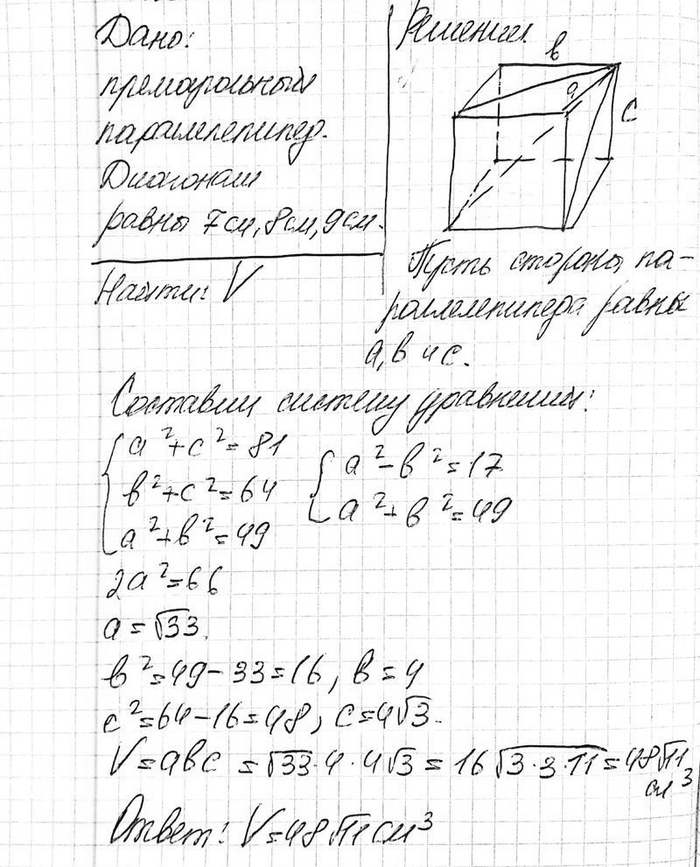 Дано:
прямоугольный
параллелепипед.
Диагонали
равны 7см, 8см, 9см.
Найти: V
Решение.
в
а
с
Пусть стороны па-
раллелепипеда равны
а, в и с.
Составим систему уравнений:
a²+c²=81
в²+c²=64
a²+в²=49
a²-в²=17
a²+в²=49
2a²=66
a=√33.
в²=49-33=16, в=4
c²=64-16=48, c=4√3.
V=aвc=√33·4·4√3=16√3·3·11=48√11 см³
Ответ: V=48√11 см³